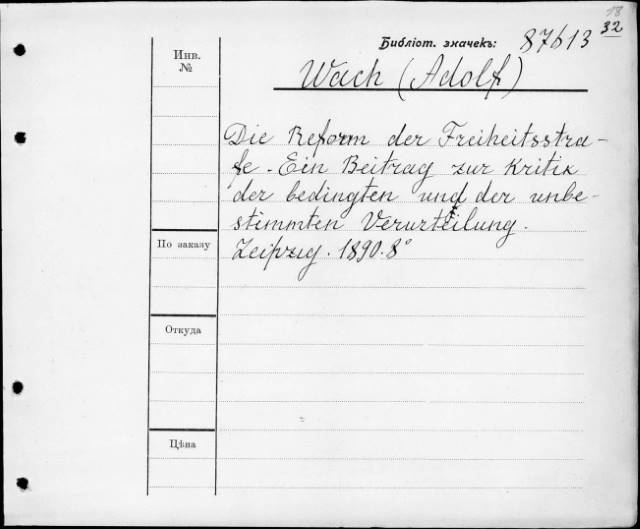 18
32
Библіот. значекъ: 87613
Инв.
№
Wach (Adolf)
Die Reform der Freiheitsstra-
fe. Ein Beitrag zur Kritik
der bedingten und der unbe-
stimmten Verurteilung.
Leipzig. 1890. 8°
По заказу
Откуда
Цѣна